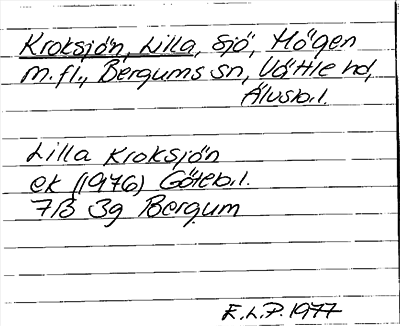 Kroksjön, Lilla, Sjö, Högen
m.fl., Bergums sn, Vättle hd,
Älvsb.l.
Lilla Kroksjön
ek (1976) Göteb.l.
7B 3g Bergum
E.L.P. 1977